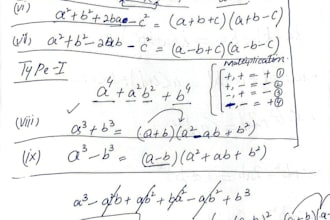 (vi) a²+b²+2ba-c² = (a+b+c)(a+b-c)
(vii) a²+b²-2ab-c² = (a-b+c)(a-b-c)
Type-I
Multiplication
+,+ = + ①
+,- = - ②
-,+ = - ③
-,- = + ④
✓ a⁴+a²b²+b⁴
(viii) a³+b³ = (a+b)(a²-ab+b²)
(ix) a³-b³ = (a-b)(a²+ab+b²)
a³-a²b+ab²+ba²-ab²+b³